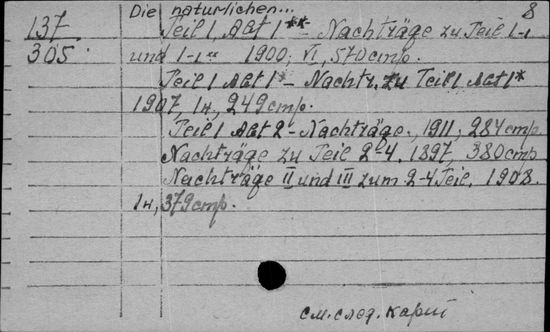 Die natürlichen... 8
137 Teil 1, Abt 1** - Nachträge zu Teil 1-1
305 und 1-1** 1900, VI, 570 стр.
Teil 1 Abt 1* - Nachtr. zu Teil 1 Abt 1*
1907, 1н, 249 стр.
Teil 1 Abt 2 - Nachträge, 1911; 284 стр
Nachträge zu Teil 2-4. 1897, 380 стр
Nachträge II und III zum 2-4 Teil. 1908.
1н, 379 стр.
см. след. карт